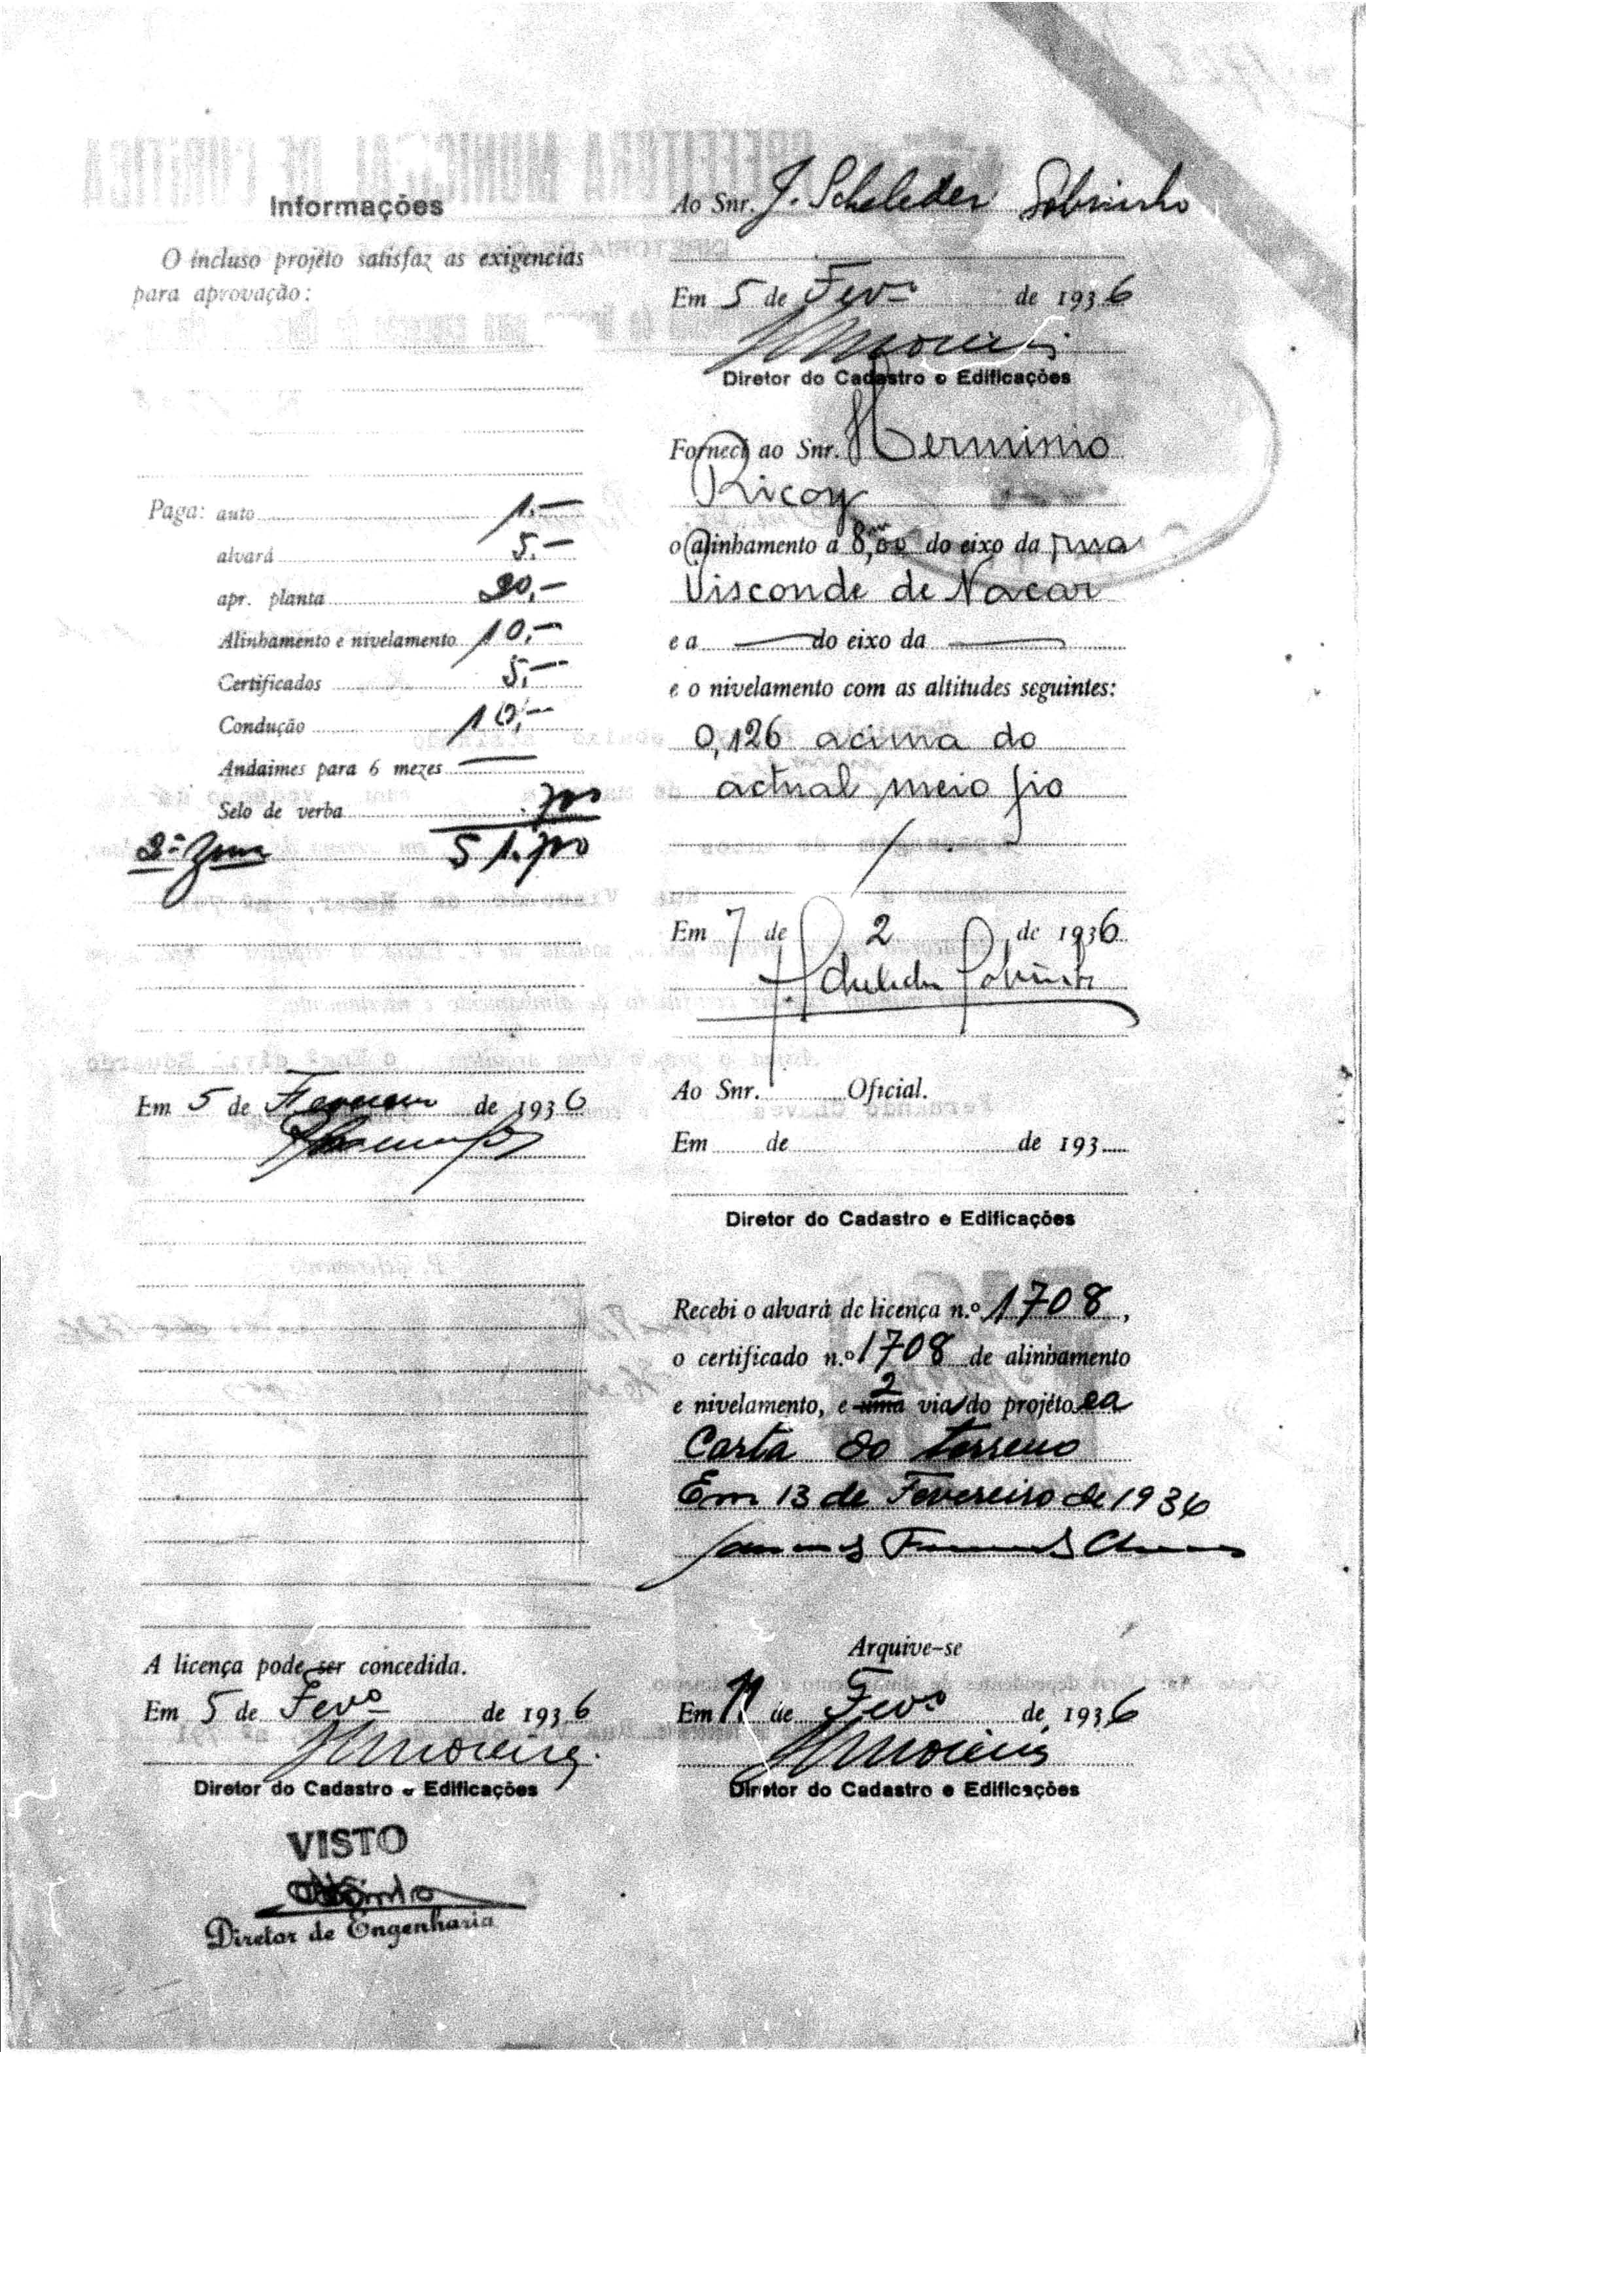 Informações
O incluso projéto satisfaz as exigencias
para aprovação:
Paga: auto 1.—
alvará 5.—
apr. planta 20,—
Alinhamento e nivelamento 10,—
Certificados 5,—
Condução 10,—
Andaimes para 6 mezes —
Selo de verba .700
2ª Zona 51.700
Em 5 de Fevereiro de 1936
A licença pode ser concedida.
Em 5 de Fevº de 1936
Moreira
Diretor do Cadastro e Edificações
VISTO
Diretor de Engenharia
Ao Snr. J. Scheleder Sobrinho
Em 5 de Fevº de 1936
Moreira
Diretor do Cadastro e Edificações
Forneci ao Snr. Herminio
Ricoy
o alinhamento a 8,00 do eixo da rua
Visconde de Nacar
e a — do eixo da —
e o nivelamento com as altitudes seguintes:
0,126 acima do
actual meio fio
Em 7 de 2 de 1936
J. Scheleder Sobrinho
Ao Snr. Oficial.
Em de de 193
Diretor do Cadastro e Edificações
Recebi o alvará de licença n.º 1708,
o certificado n.º 1708 de alinhamento
e nivelamento, e uma 2 via do projéto ea
Carta do terreno
Em 13 de Fevereiro de 1936
Fernando Chaves
Arquive-se
Em 11 de Fevº de 1936
Moreira
Diretor do Cadastro e Edificações